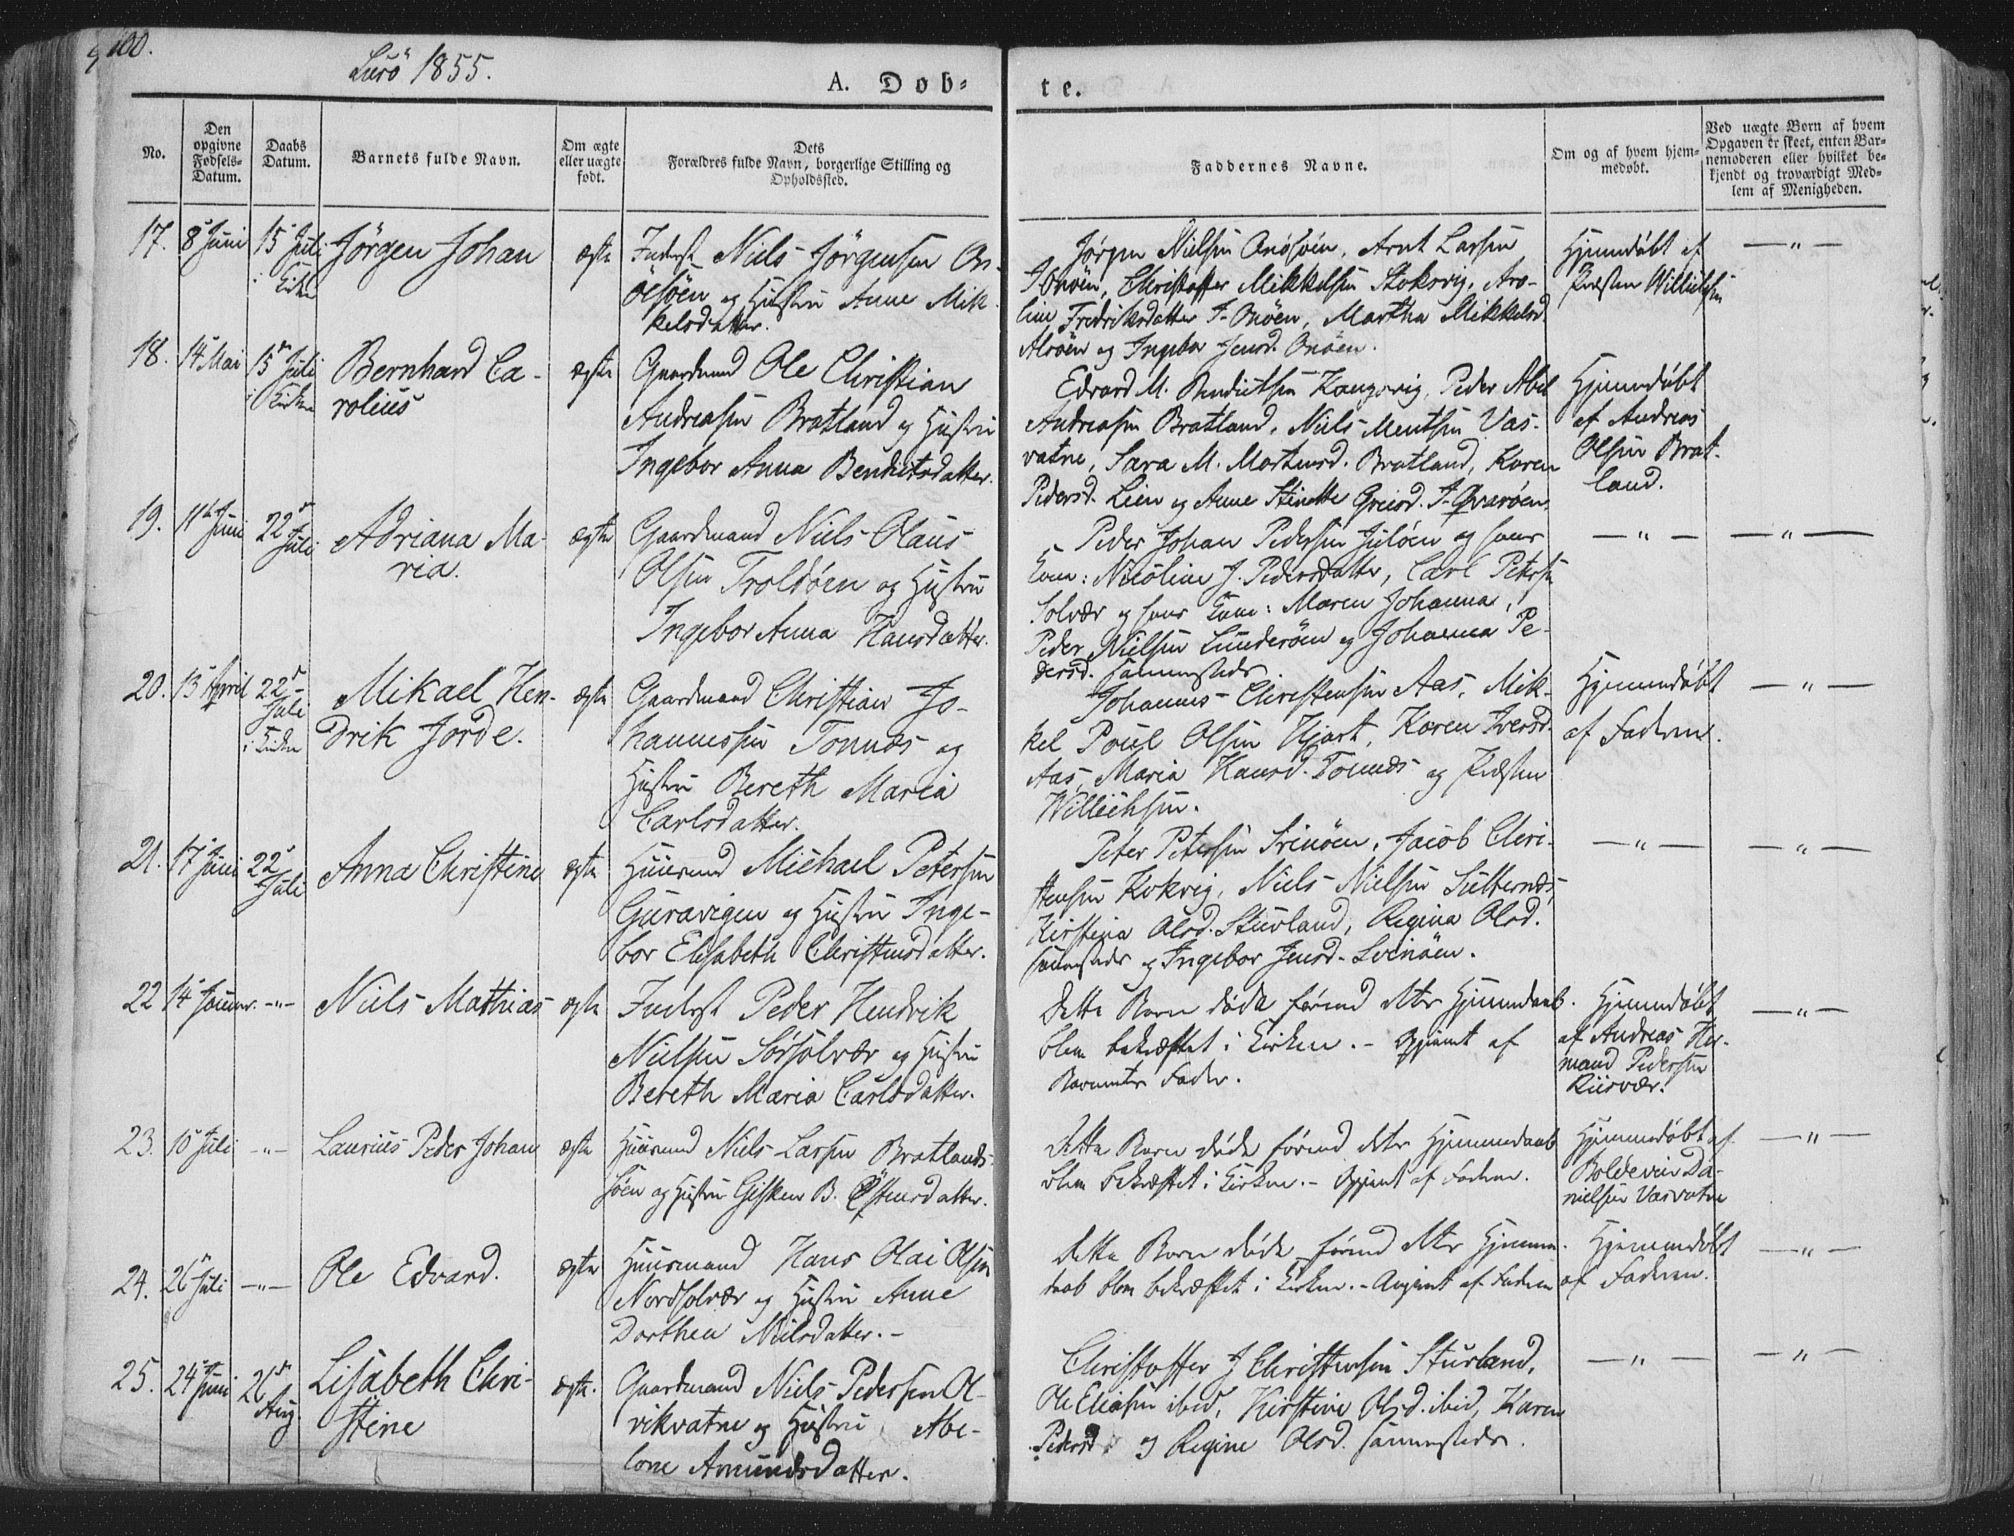 100.
Lurö 1855.
A. Dob-
te.
No.
Den opgivne Fødsels-Datum.
Daabs Datum.
Barnets fulde Navn.
Om ægte eller uægte født.
Dets Forældres fulde Navn, borgerlige Stilling og Opholdssted.
Faddernes Navne.
Om og af hvem hjem-medøbt.
Ved uægte Børn af hvem Opgaven er skeet, enten Bar-nemoderen eller hvilket be-kjendt og troværdigt Med-lem af Menigheden.
17. 8 Juni 15 Juli i Kirken
Jörgen Johan
ægte
Inderst Niels Jörgensen On-
ösöen og Hustru Anne Mik-
kelsdatter.
Jörgen Nielsen Onösöen, Arnt Larsen
Onöen, Christoffer Mikkelsen Stokvig,
Fredriksdatter Onöen, Martha Mikkelsd.
og Ingebor Jensd. Onöen.
Hjemmedöbt af
Præsten Willichsen
— " —
18. 14 Mai 15 Juli i Kirken
Bernhard Ca-
rolius
ægte
Gaardmand Ole Christian
Andreasen Bratland og Hustru
Ingebor Anna Bendictsdatter.
Edvard M. Bendictsen Kongsvig, Peder Abel
Andreasen Bratland, Niels Mentsen Vas-
vatne, Sara M. Mortensd. Bratland, Karen
Pedersd. Lien og Anne Greisd. Qvaröen.
Hjemmedöbt
af Andreas
Olsen Brat-
land.
19. 11 Juni 22 Juli
Adriana Ma-
ria.
ægte
Gaardmand Niels Olaus
Olsen Troldöen og Hustru
Ingebor Anna Hansdatter.
Peder Johan Pedersen Julöen og hans
Kone: Nicoline J. Pedersdatter, Carl Petersen
Solvær og hans Kone: Maren Johanna,
Peder Nielsen Lunderöen og Johanna Pe-
dersd. sammesteds.
— " —
— " —
20. 13 April 22 Juli i Kirken
Mikael Hen-
drik Jorde.
ægte
Gaardmand Christian Jo-
hannessen Tonnæs og
Hustru Bereth Maria
Carlsdatter.
Johannes Christensen Aas, Mik-
kel Poul Olsen Hjart, Karen Iversd.
Aas, Maria Hansd. Tonnæs og Præsten
Willichsen.
Hjemmedöbt
af Faderen.
— " —
21. 17 Juni 22 Juli
Anna Christine
ægte
Huusmand Michael Petersen
Guravigen og Hustru Inge-
bor Elisabeth Christensdatter.
Peter Petersen Svinöen, Jacob Chri-
stensen Kokvig, Niels Nielsen Sutternæs,
Kirstina Olsd. Stuvland, Regina Olsd.
sammesteds og Ingebor Jensd. Svinöen.
— " —
— " —
22 14 Januar. — " —
Niels Mathias
ægte
Inderst Peder Hendrik
Nielsen Sörsolvær og Hustru
Bereth Maria Carlsdatter.
Dette Barn döde förend dets Hjemmedaab
blev bekræftet i Kirken. - Opgivet af
Barnets Fader.
Hjemmedöbt
af Andreas Her-
mand Pedersen
Riisvær.
— " —
23. 10 Juli — " —
Laurius Peder Johan
ægte
Huusmand Niels Larsen Bratlands-
söen og Hustru Gisken B. Östensdatter.
Dette Barn döde förend dets Hjemmedaab
blev bekræftet i Kirken. - Opgivet af Faderen.
Hjemmedöbt af
Boldevin Da-
nielsen Vasvatne
— " —
24. 26 Juli — " —
Ole Edvard.
ægte
Huusmand Hans Olai Olsen
Nordsolvær og Hustru Anne
Dorthea Nielsdatter. -
Dette Barn döde förend dets Hjemme-
daab blev bekræftet i Kirken. - Angivet af Faderen
Hjemmedöbt
af Faderen.
— " —
25. 24 Juni 26 Aug.
Lisabeth Chri-
stine
ægte.
Gaardmand Niels Pedersen Ol-
vikvatne og Hustru Abe-
lone Amundsdatter.
Christoffer J Christensen Stuvland,
Ole Eliasen ibid, Kirstine Olsd. ibid, Karen
Pedersd og Regine Olsd. sammesteds.
— " —
— " —